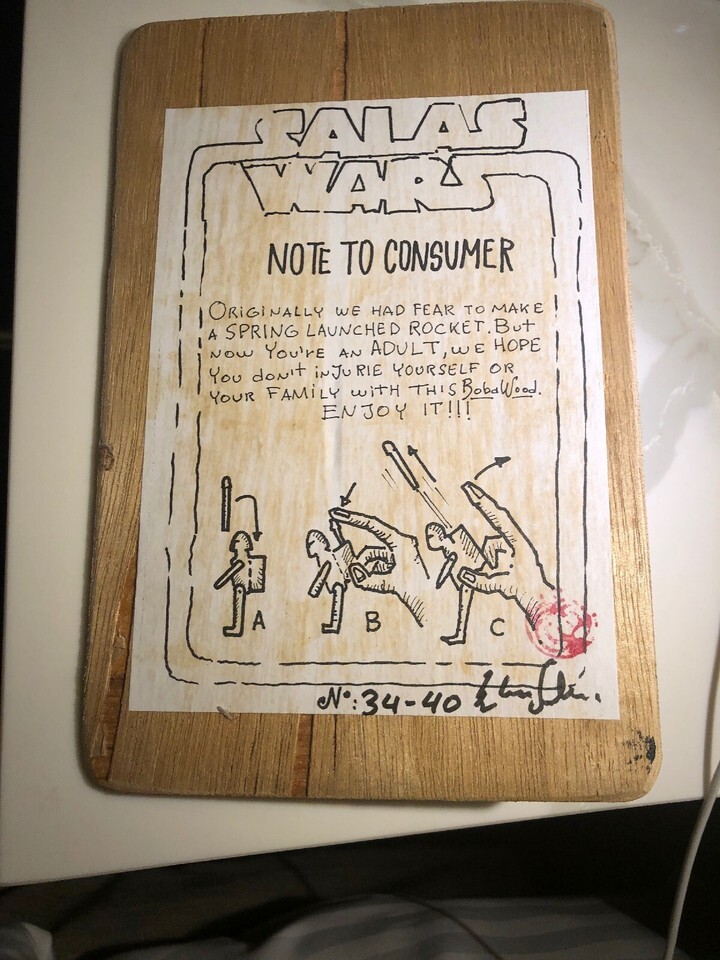 SALAS
WARS
NOTE TO CONSUMER
ORIGINALLY WE HAD FEAR TO MAKE
A SPRING LAUNCHED ROCKET. BUT
NOW YOU'RE AN ADULT, WE HOPE
YOU DON'T INJURIE YOURSELF OR
YOUR FAMILY WITH THIS BobaWood.
ENJOY IT!!!
A
B
C
Nº: 34-40